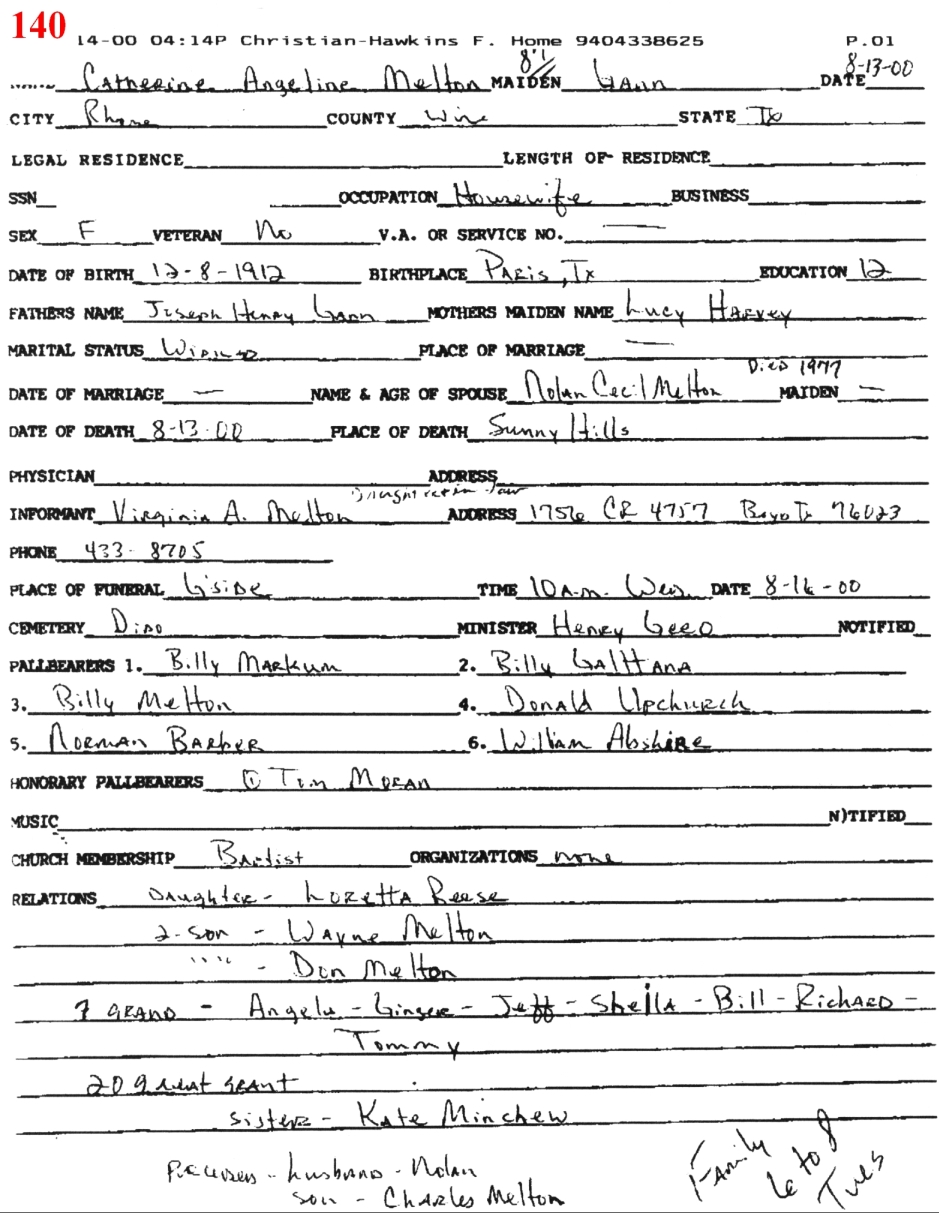 140
14-00 04:14P Christian-Hawkins F. Home 9404338625 P.01
Catherine Angeline Melton MAIDEN Gann DATE 8-13-00
CITY Rhome COUNTY Wise STATE Tx
LEGAL RESIDENCE LENGTH OF RESIDENCE
SSN OCCUPATION Housewife BUSINESS
SEX F VETERAN No V.A. OR SERVICE NO. —
DATE OF BIRTH 12-8-1912 BIRTHPLACE Paris, Tx EDUCATION 12
FATHERS NAME Joseph Henry Gann MOTHERS MAIDEN NAME Lucy Harvey
MARITAL STATUS PLACE OF MARRIAGE —
Died 1977
DATE OF MARRIAGE — NAME & AGE OF SPOUSE Nolan Cecil Melton MAIDEN —
DATE OF DEATH 8-13-00 PLACE OF DEATH Sunny Hills
PHYSICIAN ADDRESS
INFORMANT Virginia A. Melton ADDRESS 1756 CR 4757 76023
PHONE 433-8705
PLACE OF FUNERAL G'side TIME 10 a.m. Wed. DATE 8-16-00
CEMETERY Dido MINISTER Henry Geeo NOTIFIED
PALLBEARERS 1. Billy Markum 2. Billy
3. Billy Melton 4. Donald Upchurch
5. Norman Barber 6. William Abshire
HONORARY PALLBEARERS ① Tim Moran
MUSIC N)TIFIED
CHURCH MEMBERSHIP Baptist ORGANIZATIONS none
RELATIONS Daughter - Loretta Reese
2-son - Wayne Melton
" " - Don Melton
7 GRAND - Angela - Ginger - Jeff - Sheila - Bill - Richard -
Tommy
20 great
sister - Kate Minchew
husband - Nolan
son - Charles Melton
Family
6 to 8
Tues